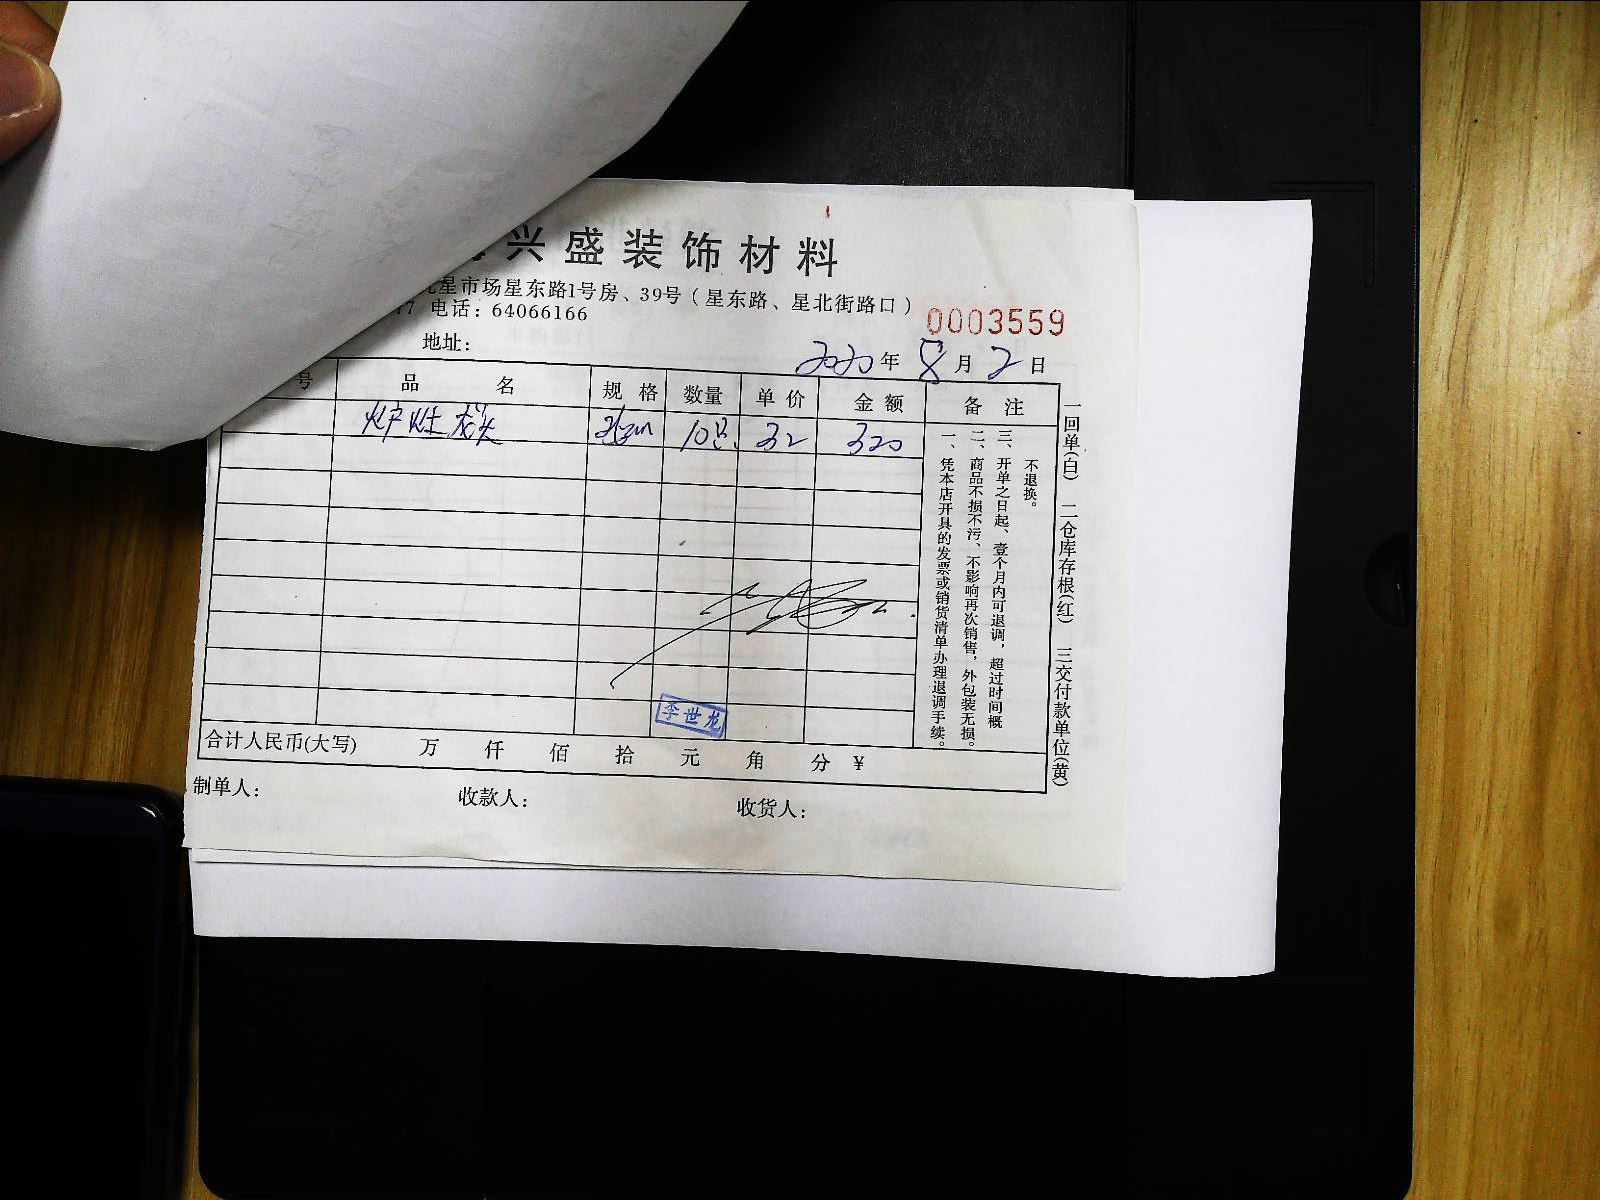 兴盛装饰材料
星市场星东路1号房、39号(星东路、星北街路口)
77 电话：64066166
0003559
地址：
2020年8月2日
号 品名 规格 数量 单价 金额 备注
炉灶龙头 10只 32 320
一、凭本店开具的发票或销货清单办理退调手续。
二、商品不损不污、不影响再次销售，外包装无损。
三、开单之日起、壹个月内可退调，超过时间概
不退换。
一回单(白) 二仓库存根(红) 三交付款单位(黄)
李世龙
合计人民币(大写) 万 仟 佰 拾 元 角 分 ¥
制单人： 收款人： 收货人：